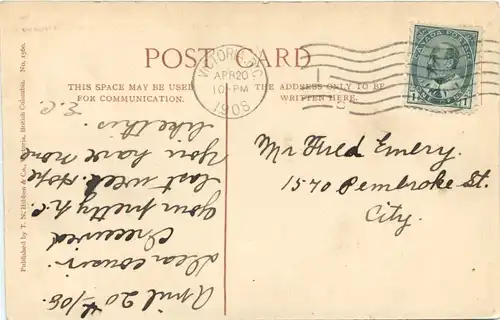 POST CARD
THIS SPACE MAY BE USED
FOR COMMUNICATION.
THE ADDRESS ONLY TO BE
WRITTEN HERE.
VICTORIA, B.C.
APR 20
10-PM
1908
CANADA POSTAGE
1 1
Mr Fred Emery.
1570 Pembroke St.
City.
April 20th/08.
Dear cousin.
I received
your pretty p.c.
last week. Hope
you have none
like this.
E.C.
Published by T. N. Hibben & Co., Victoria, British Columbia. No. 1560.